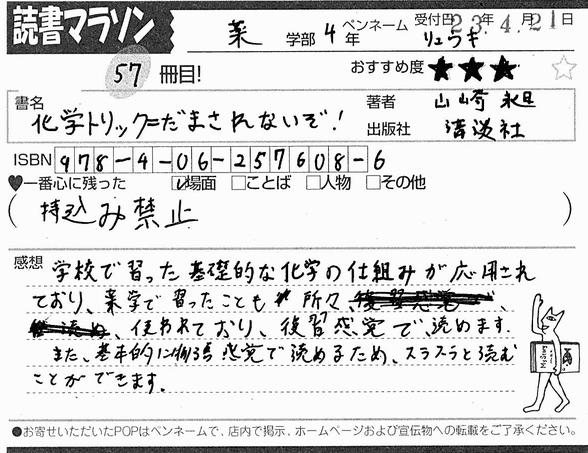 読書マラソン
薬 学部 4 年 ペンネーム リュウキ 受付日 23年 4月 21日
57 冊目! おすすめ度 ★★★☆
書名 化学トリック=だまされないぞ! 著者 山崎 昶
出版社 講談社
ISBN 978-4-06-257608-6
♥一番心に残った ☑場面 □ことば □人物 □その他
(持込み禁止)
感想 学校で習った基礎的な化学の仕組みが応用され
ており、薬学で習ったことも所々、
、使われており、復習感覚で、読めます。
また、基本的に物語感覚で読めるため、スラスラと読む
ことができます。
●お寄せいただいたPOPはペンネームで、店内で掲示、ホームページおよび宣伝物への転載をご了承ください。